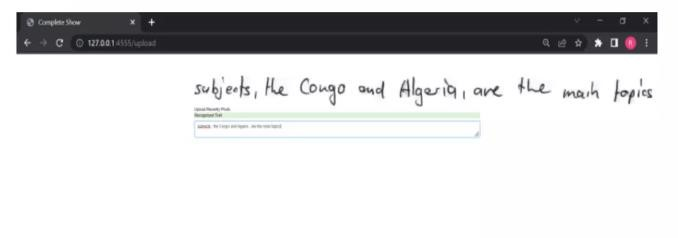 Complete Show
127.0.0.1:4555/upload
subjects, the Congo and Algeria, are the main topics
Upload Recently Photo
Recognized Text
subjects , the Congo and Algeria , are the main topics